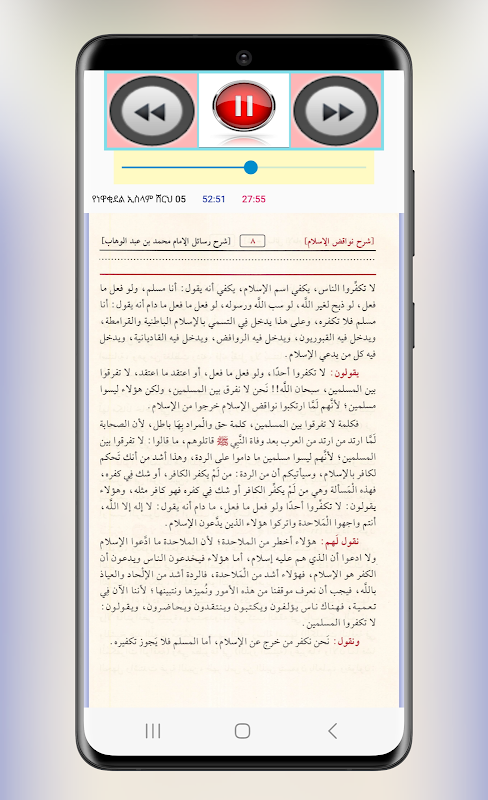 የነዋቂደል ኢስላም ሸርህ 05 52:51 27:55
[شرح نواقض الإسلام] ٨ [شرح رسائل الإمام محمد بن عبد الوهاب]
لا تكفّروا الناس، يكفي اسم الإسلام، يكفي أنه يقول: أنا مسلم، ولو فعل ما
فعل، لو ذبح لغير اللَّه، لو سب اللَّه ورسوله، لو فعل ما فعل ما دام أنه يقول: أنا
مسلم فلا تكفره، وعلى هذا يدخل فِي التسمي بالإسلام الباطنية والقرامطة،
ويدخل فيه القبوريون، ويدخل فيه الروافض، ويدخل فيه القاديانية، ويدخل
فيه كل من يدعي الإسلام.
يقولون: لا تكفروا أحدًا، ولو فعل ما فعل، أو اعتقد ما اعتقد، لا تفرقوا
بين المسلمين، سبحان اللَّه!! نَحن لا نفرق بين المسلمين، ولكن هؤلاء ليسوا
مسلمين؛ لأنَّهم لَمَّا ارتكبوا نواقض الإسلام خرجوا من الإسلام.
فكلمة لا تفرقوا بين المسلمين، كلمة حق والْمراد بِهَا باطل، لأن الصحابة
لَمَّا ارتد من ارتد من العرب بعد وفاة النَّبِي ﷺ قاتلوهم، ما قالوا: لا تفرقوا بين
المسلمين؛ لأنَّهم ليسوا مسلمين ما داموا على الردة، وهذا أشد من أنك تَحكم
لكافر بالإسلام، وسيأتيكم أن من الردة: من لَمْ يكفر الكافر، أو شك فِي كفره،
فهذه الْمَسألة وهي من لَمْ يكفِّر الكافر أو شك فِي كفره فهو كافر مثله، وهؤلاء
يقولون: لا تكفِّروا أحدًا ولو فعل ما فعل، ما دام أنه يقول: لا إله إلا اللَّه،
أنتم واجهوا الْمَلاحدة واتركوا هؤلاء الذين يدَّعون الإسلام.
نقول لَهم: هؤلاء أخطر من الملاحدة؛ لأن الملاحدة ما ادَّعوا الإسلام
ولا ادعوا أن الذي هم عليه إسلام، أما هؤلاء فيخدعون الناس ويدعون أن
الكفر هو الإسلام، فهؤلاء أشد من الْمَلاحدة، فالردة أشد من الإلْحاد والعياذ
باللَّه، فيجب أن نعرف موقفنا من هذه الأمور ونُميزها ونتبينها؛ لأننا الآن فِي
تعمية، فهناك ناس يؤلفون ويكتبون وينتقدون ويحاضرون، ويقولون:
لا تكفروا المسلمين.
ونقول: نَحن نكفر من خرج عن الإسلام، أما المسلم فلا يَجوز تكفيره.